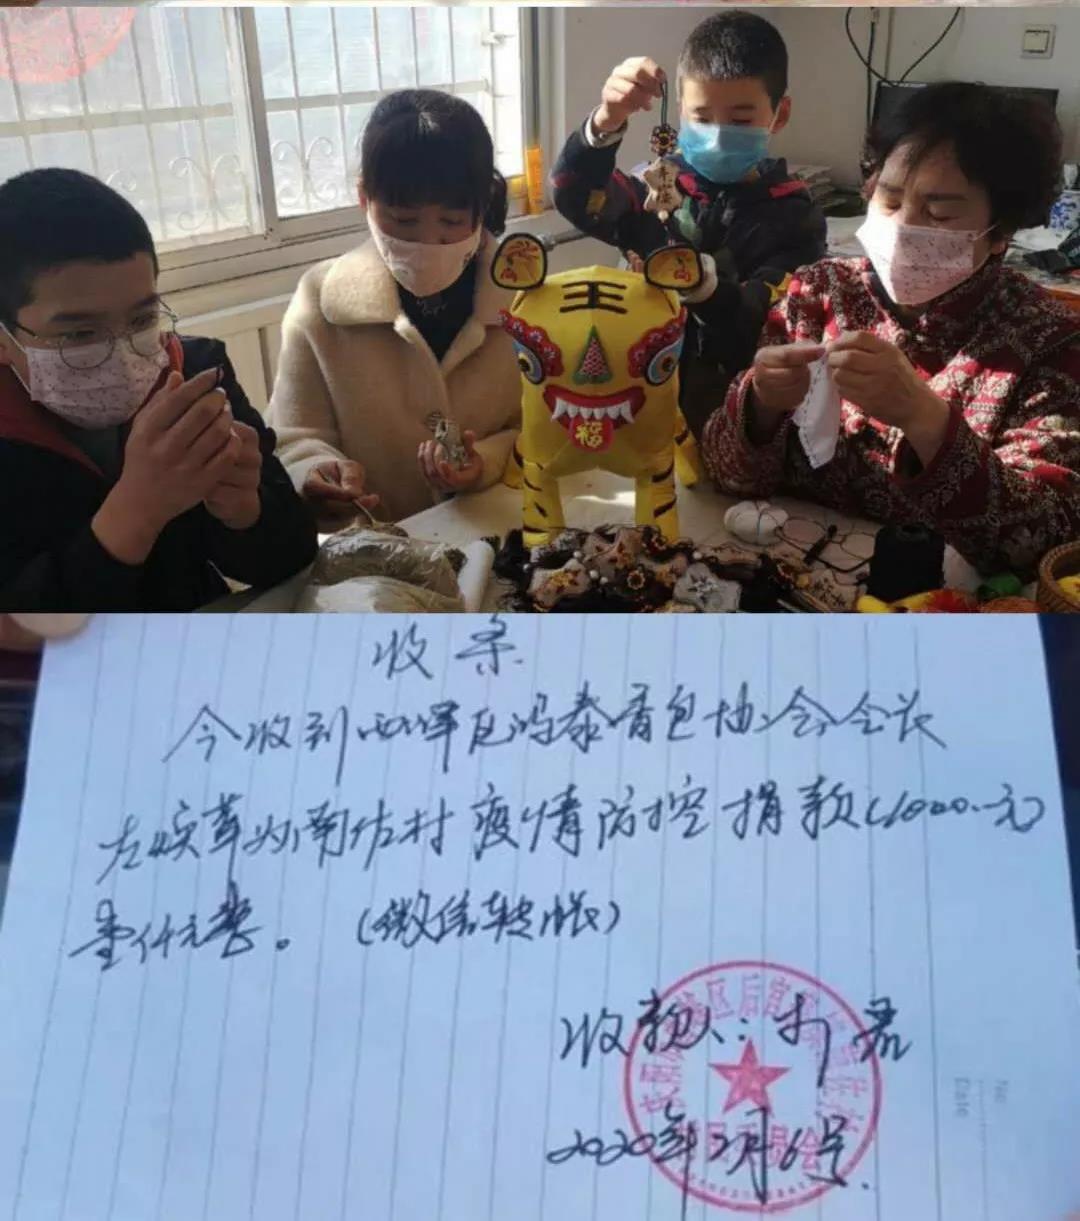 王
福
收条
今收到西峰区鸿泰香包协会会长
左焕茸为南佐村疫情防控捐款(1000.元)
壹仟元整。(微信转账)
收款人:
2020年2月6号.
No
Date